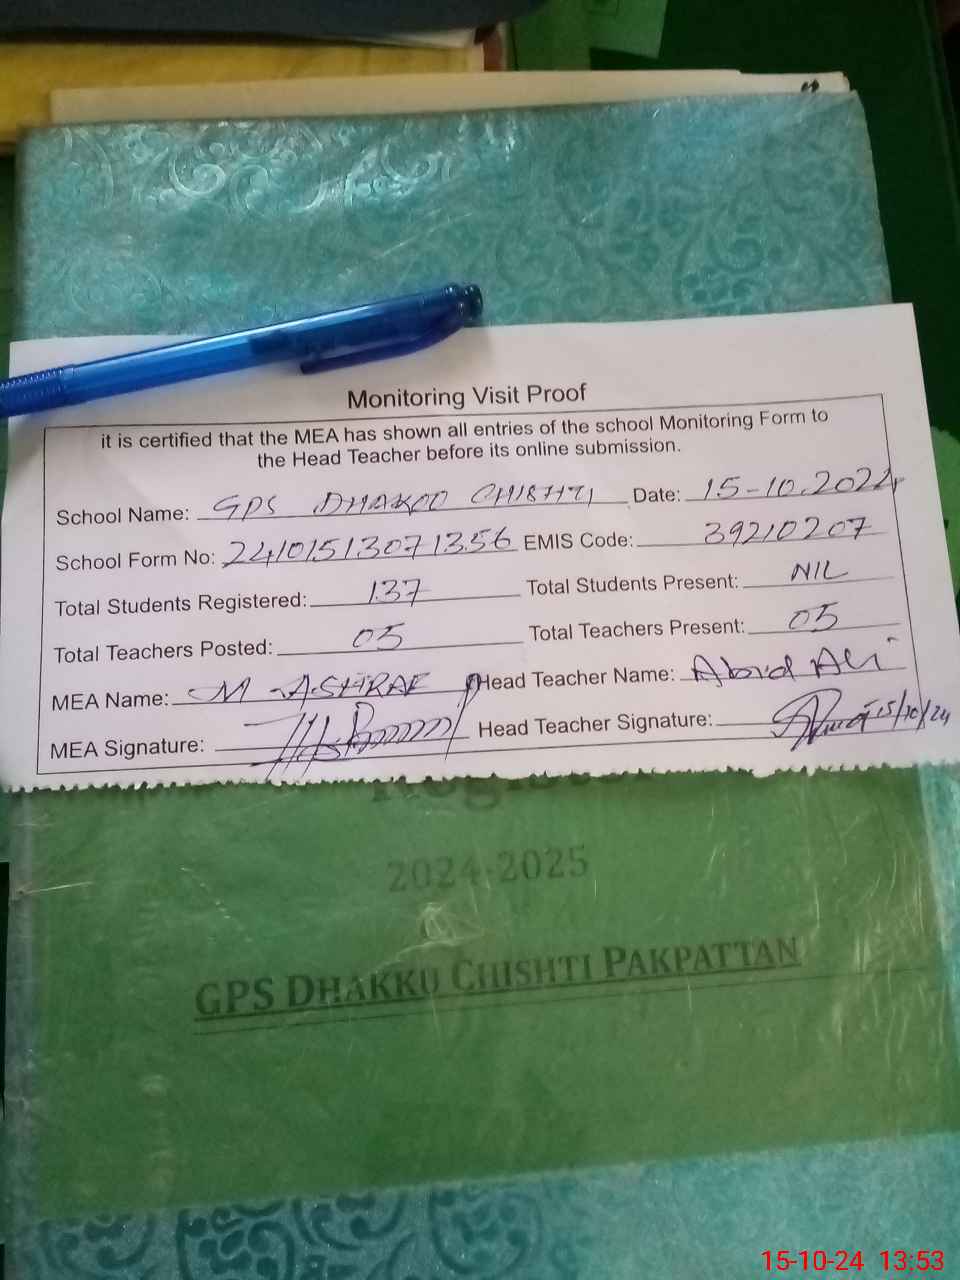 Monitoring Visit Proof
it is certified that the MEA has shown all entries of the school Monitoring Form to
the Head Teacher before its online submission.
School Name: GPS DHAKOO CHISHTI Date: 15-10.2024
School Form No: 241015130713 56 EMIS Code: 39210207
Total Students Registered: 137 Total Students Present: NIL
Total Teachers Posted: 05 Total Teachers Present: 05
MEA Name: M ASHRAF Head Teacher Name: Abid Ali
MEA Signature: Head Teacher Signature: 15/10/24
Register
2024-2025
GPS DHAKKU CHISHTI PAKPATTAN
15-10-24 13:53